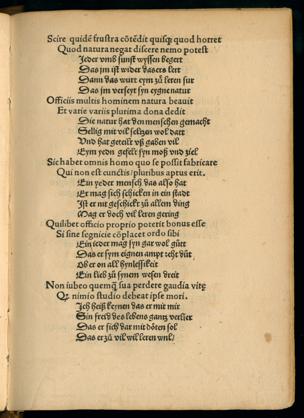 Scire quidē frustra cōtēdit quisq; quod horret
Quod natura negat discere nemo potest
Jeder vmb sunst wyssen begert
Das jm ist wider das ers lert
Dann das wurt eym zů leren sur
Das jm verseyt syn eygne natur
Officiis multis hominem natura beauit
Et varie variis plurima dona dedit
Die natur hat den menschen gemacht
Sellig mit vil seltzen wol dart
Vnd hat geteilt vß gaben vil
Eym yedn gefelt syn moß vnd ziel
Sic habet omnis homo quo se possit fabricare
Qui non est cunctis/pluribus aptus erit.
Ein yeder mensch das also hat
Er mag sich schicken in ein stadt
Jt er nit geschickt zů allem ding
Mag er doch vil leren gering
Quilibet officio proprio poterit bonus esse
Si sine segnicie cōplacet ordo sibi
Ein ieder mag syn gar wol gůtt
Das er sym eignen ampt recht důt
Ob er on all hynlessikeit
Ein lieb zů synem wesen dreit
Non iubeo quemq̄ sua perdere gaudia vitę
Q; nimio studio debeat ipse mori.
Jch heiß keynen das er mit mir
Sin freid des lebens gantz verlier
Das er sich dar mit döten sol
Das er zů vil wil leren wol/